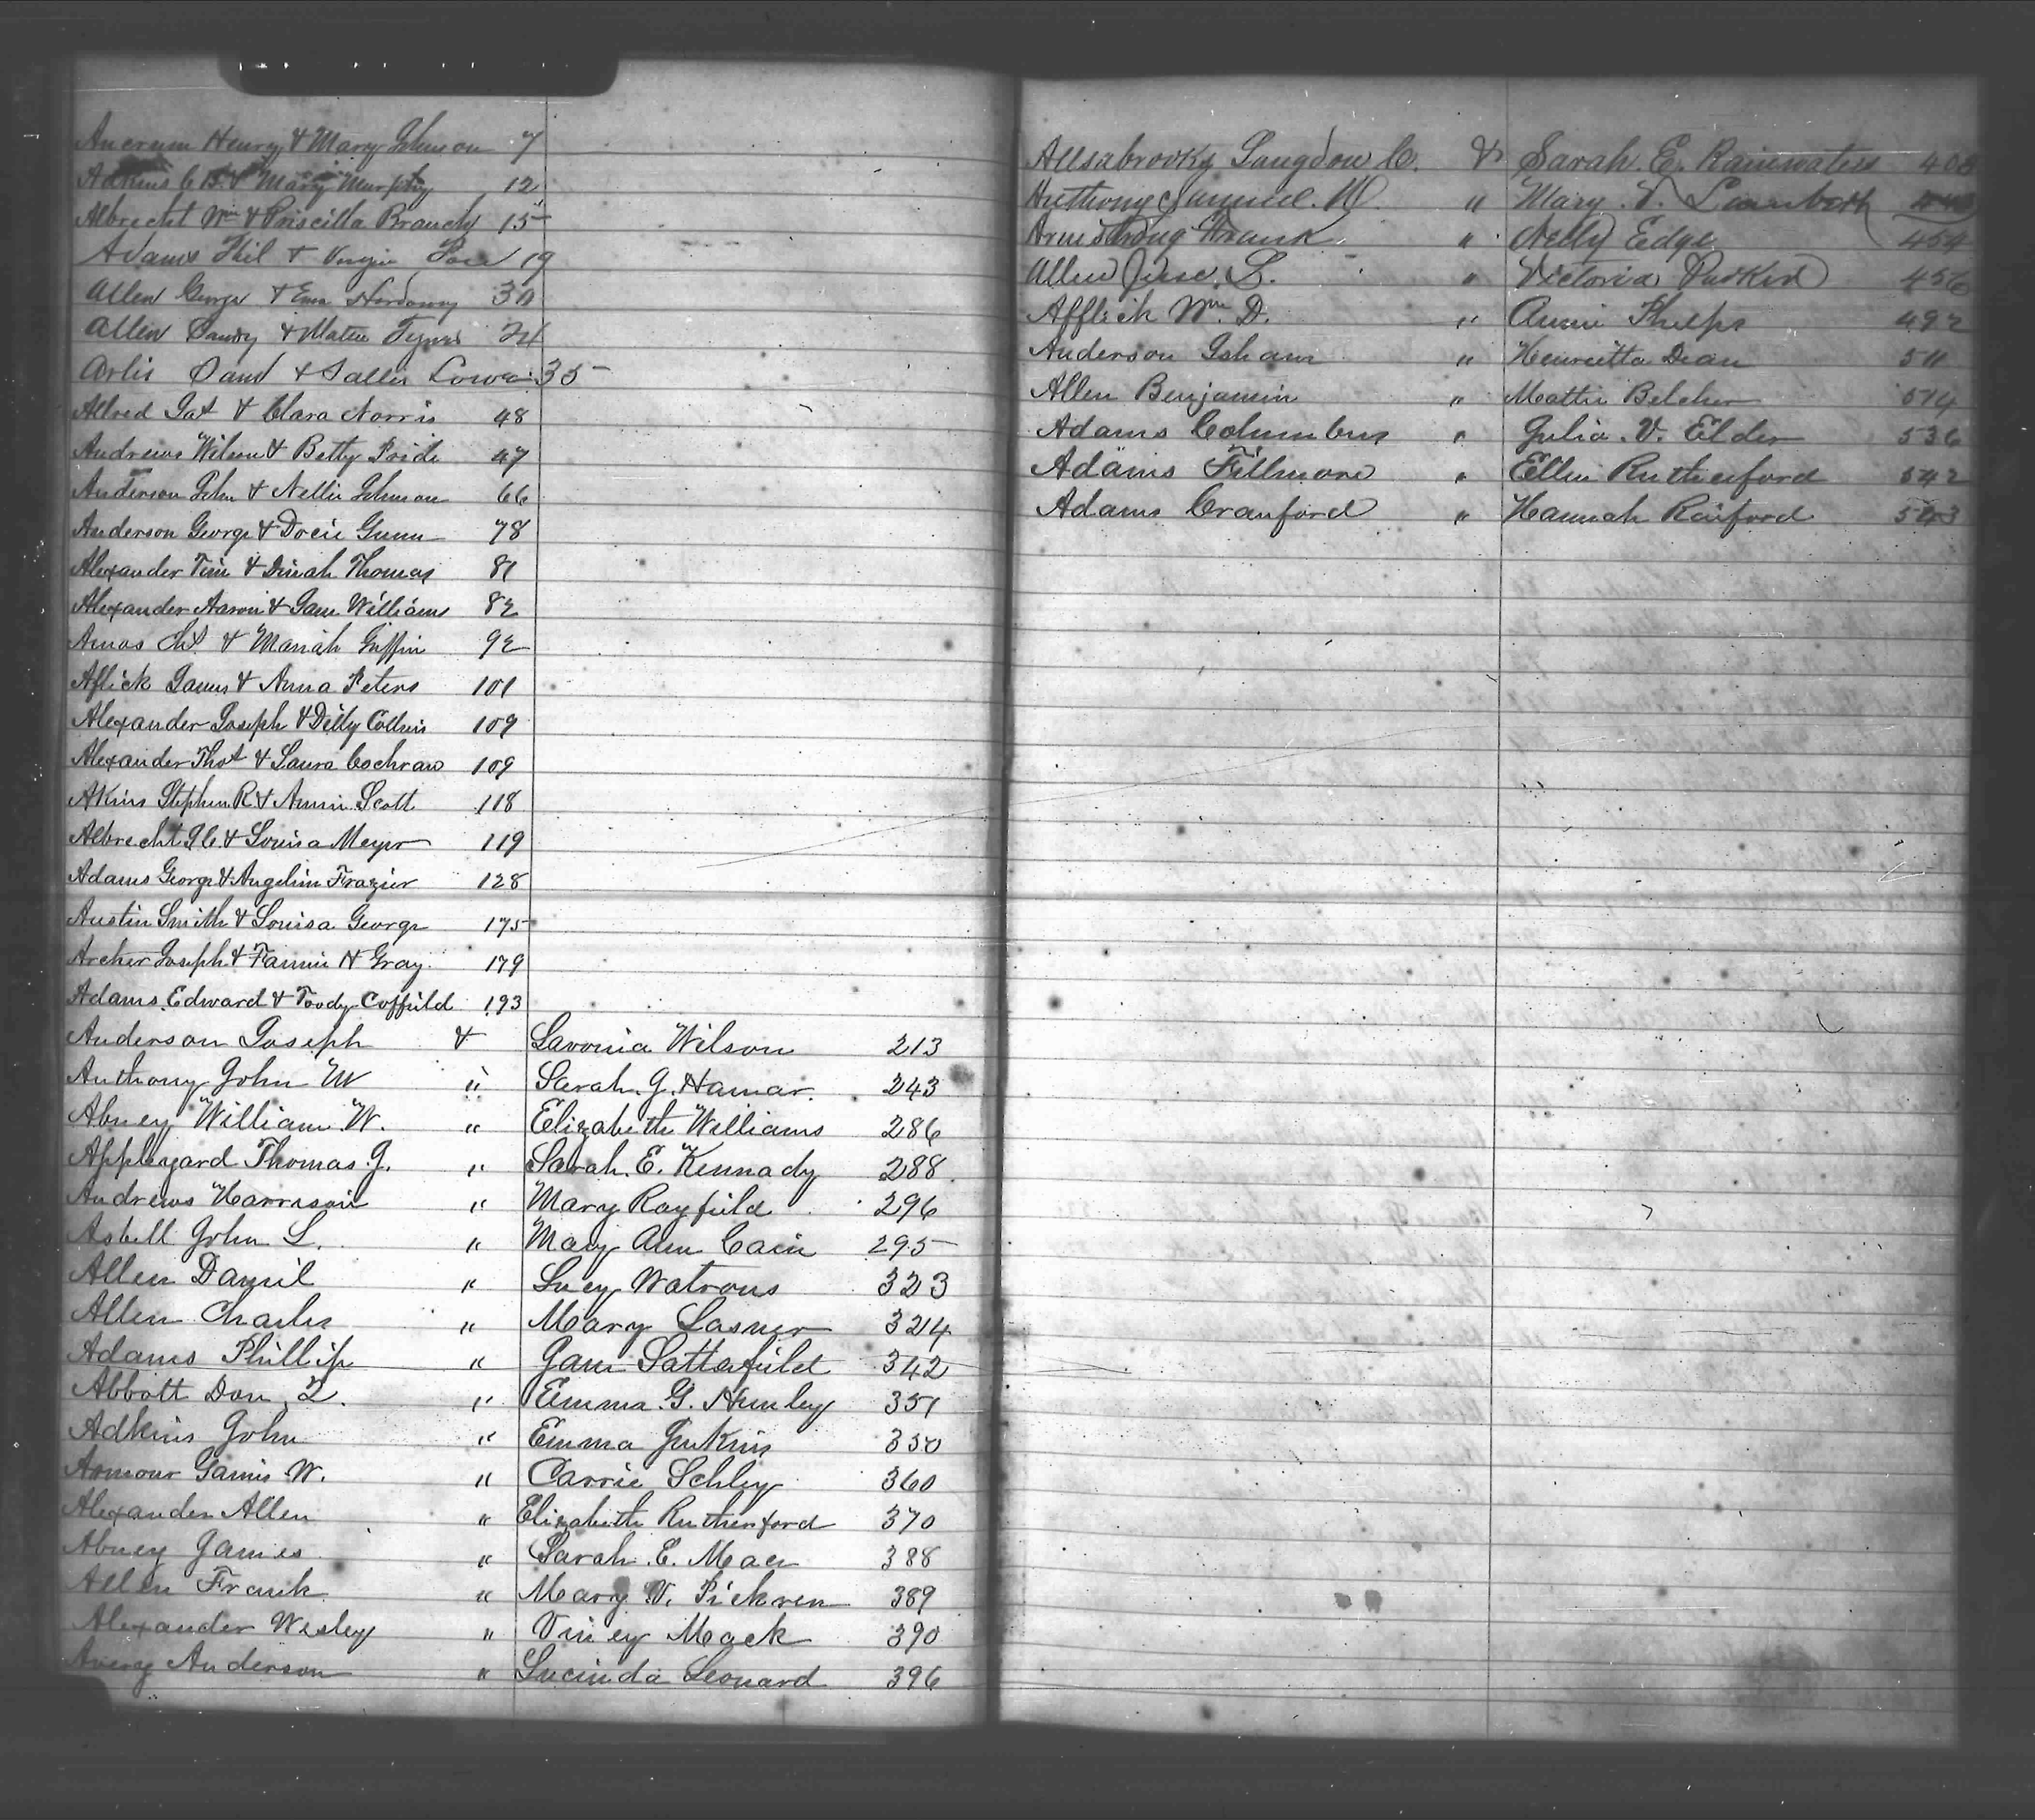 Ancrum Henry & Mary Johnson 7
Adkins C B. & Mary Murphy 12
Albrecht Wm & Priscilla Branch 15
Adams Phil & Virgie 19
Allen George & Ema Hardaway 30
Allen Sandy & Matta 24
Arlis & Sallie 35
Allred & Clara Norris 48
Andrews Wilson & Betty Pride 47
Anderson John & Nellie Johnson 66
Anderson George & Docie Gunn 78
Alexander Tim & Dinah Thomas 81
Alexander Aaron & Jane Williams 82
Amos & Mariah Griffin 92
Aflick James & Anna Peters 101
Alexander Joseph & Dilly Collins 109
Alexander Thos & Laura Cochran 109
Akins Stephen R. & Annie Scott 118
Albrecht & Louisa Meyer 119
Adams George & Angeline Frazier 128
Austin Smith & Louisa George 175
Archer Joseph & Fannie H Gray 179
Adams Edward & Toody Coffield 193
Anderson Joseph & Lavonia Wilson 213
Anthony John W " Sarah J. Hamar. 243
Abney William W. " Elizabeth Williams 286
Appleyard Thomas J. " Sarah E. Kennady 288
Andrews Harrison " Mary Rayfield 296
Asbell John L. " Mary Ann Cain 295
Allen Daniel " Lucy Watrous 323
Allen Charles " Mary Lasner 324
Adams Phillip " Jane Satterfield 342
Abbott Don Z. " Emma G. Humley 351
Adkins John " Emma Jenkins 350
Armour James W. " Carrie Schley 360
Alexander Allen " Elizabeth Rutherford 370
Abney James " Sarah E. 388
Allen Frank " Mary V. Pickren 389
Alexander Wesley " Viney Mack 390
Avery Anderson " Lucinda Leonard 396
Allsabrooks Langdon C. & Sarah E. Rainwaters 408
Anthony Samuel W. " Mary V.
Armstrong Frank " Nelly Edge 454
Allen Jesse L. " Victoria 456
Afflick Wm. D. " Annie Phelps 492
Anderson Isham " Henrietta Dean 511
Allen Benjamin " Mattie Belcher 514
Adams Columbus " Julia V. Elder 536
Adams Fillmore " Ellen Rutherford 542
Adams Cranford " Hannah Raiford 543